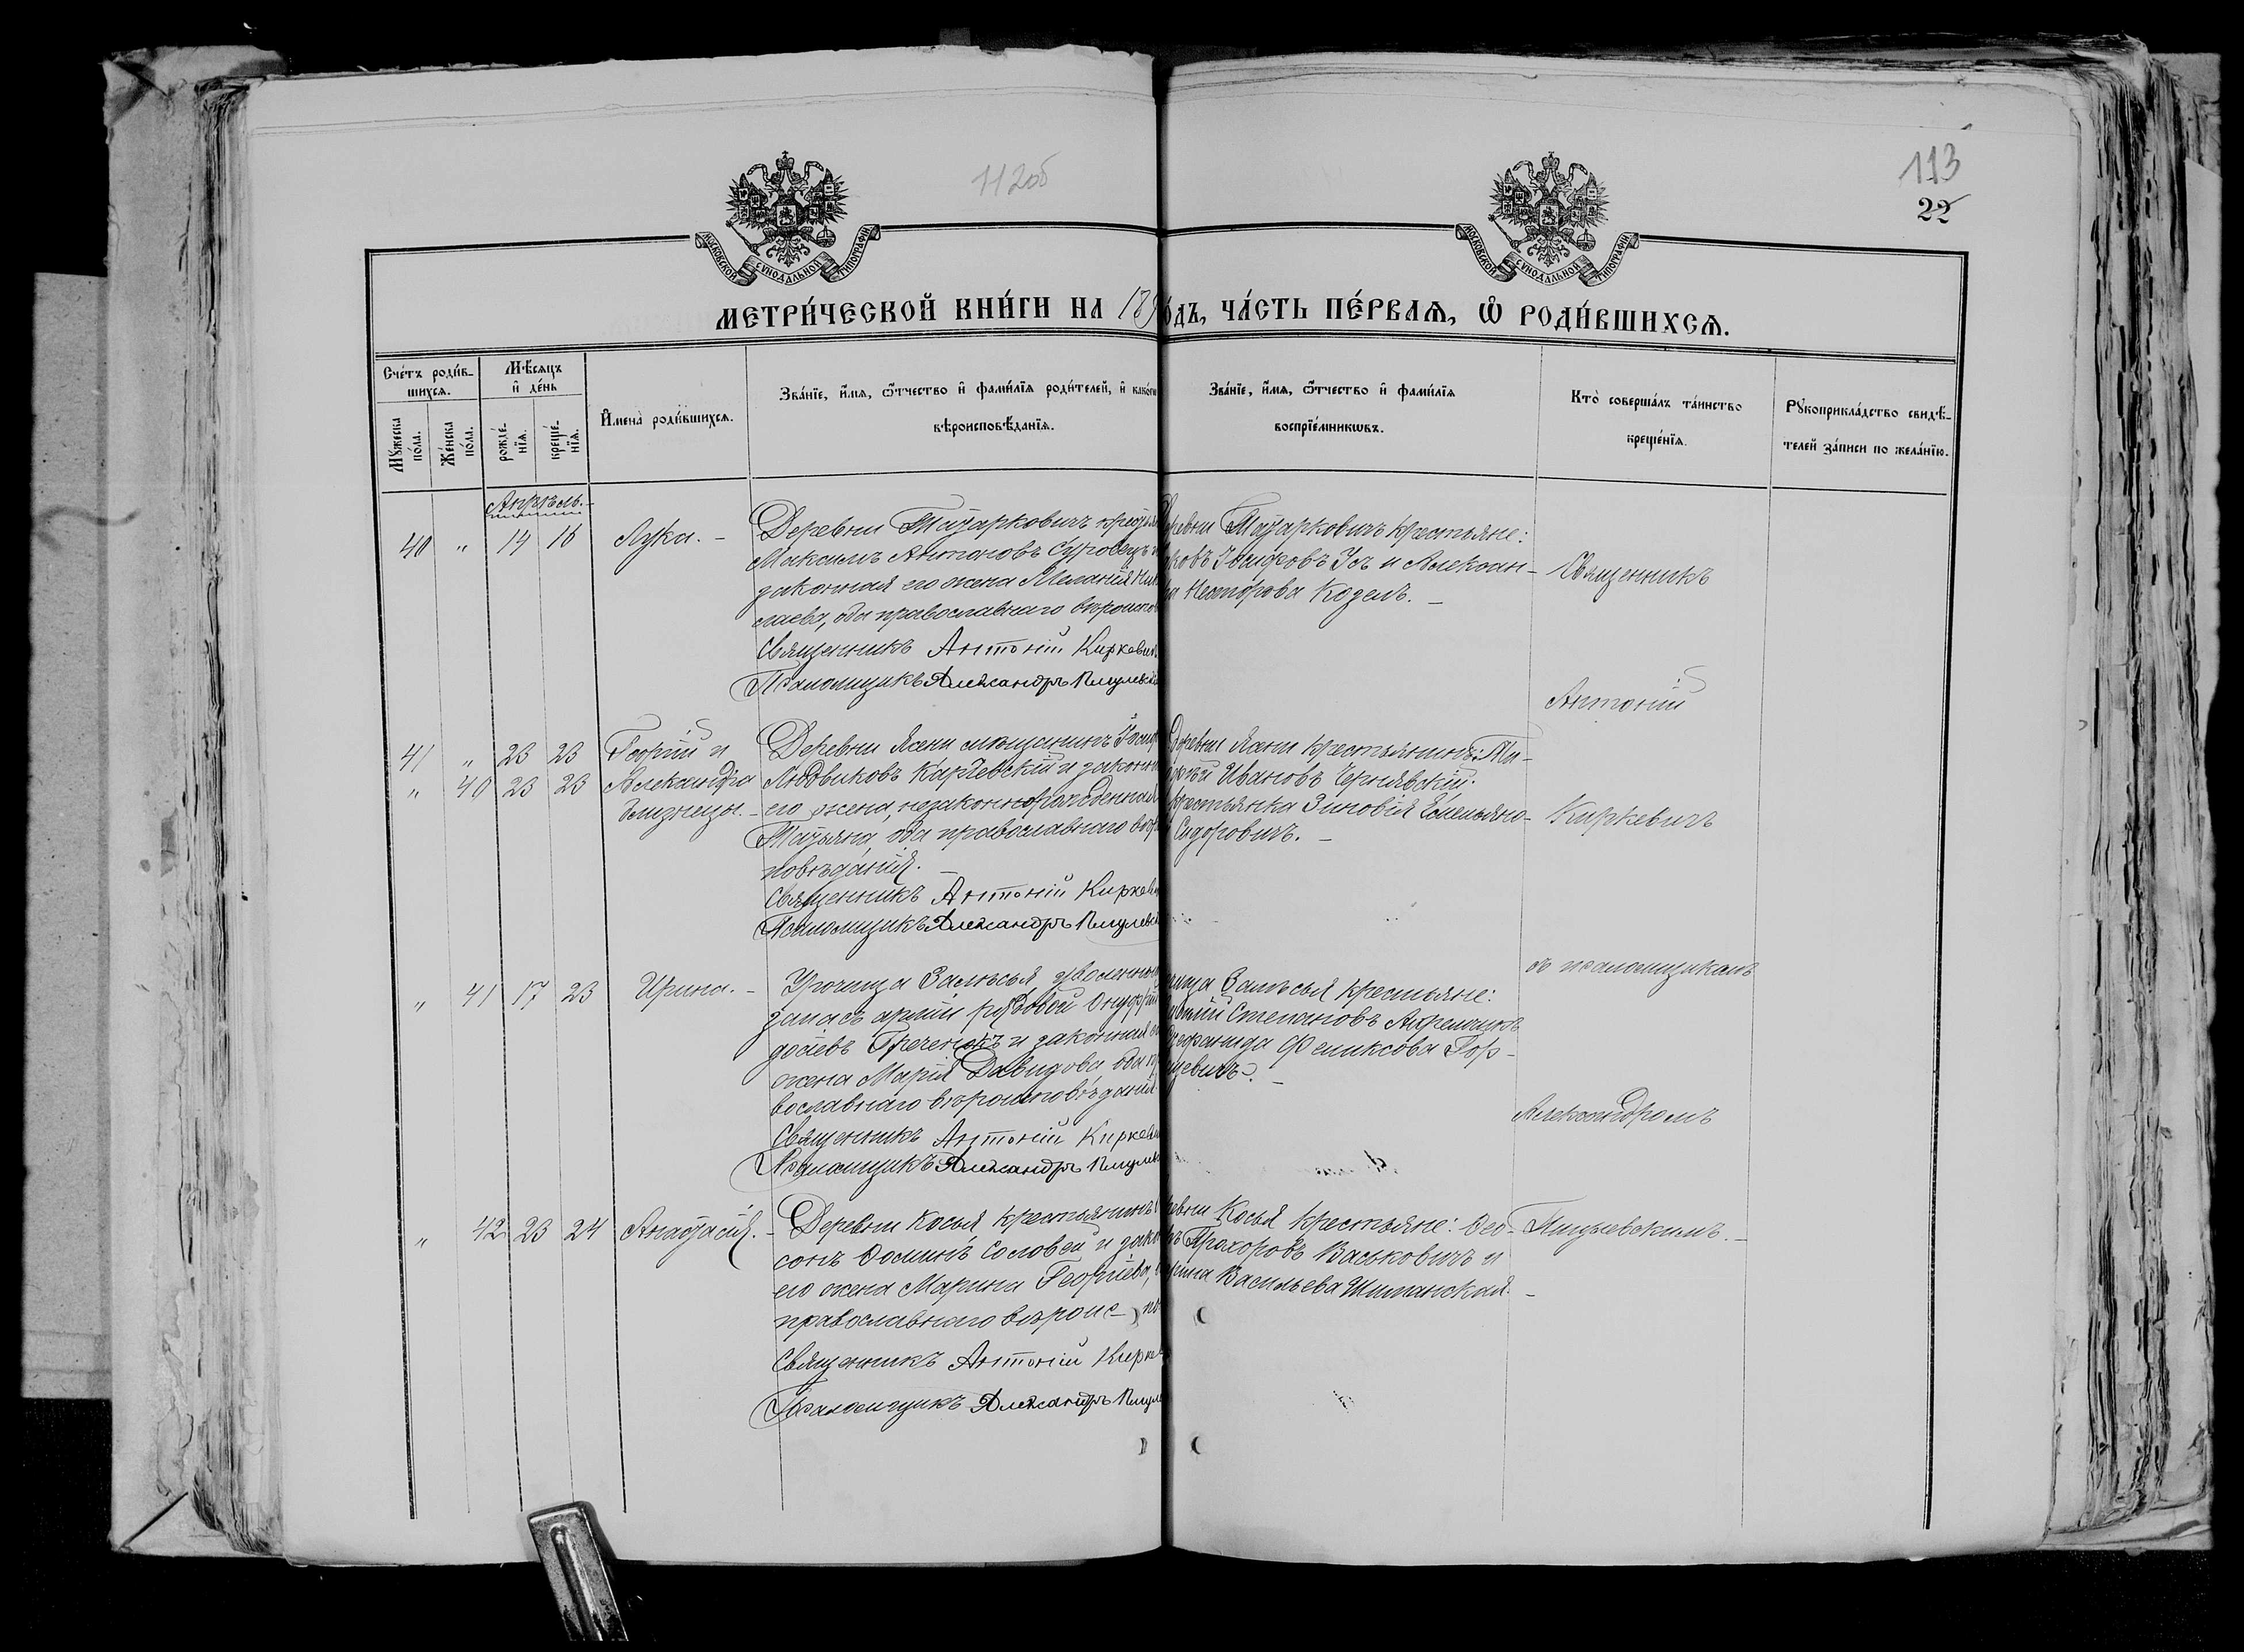 112об
113
22
МОСКОВСКОЙ СѴНОДАЛЬНОЙ ТИПОГРАФІИ
МОСКОВСКОЙ СѴНОДАЛЬНОЙ ТИПОГРАФІИ
МЕТРИ́ЧЕСКОЙ КНИ́ГИ НА 189 ОДЪ, ЧА́СТЬ ПЕ́РВАѦ, Ѡ РОДИ́ВШИХСѦ.
Сче́тъ роди́в-
шихсѧ.
Мꙋ́жеска по́ла.
Же́нска по́ла.
Мѣ́сяцъ
и де́нь
рожде́-
нїѧ.
креще́-
нїѧ.
Имена̀ роди́вшихсѧ.
Зва́нїе, и́мѧ, ѻ́тчество и фами́лїѧ роди́телей, и како́гѡ
вѣроисповѣ́данїѧ.
Зва́нїе, и́мѧ, ѻ́тчество и фами́лїѧ
воспрїе́мникѡвъ.
Кто̀ соверша́лъ та́инство
креще́нїѧ.
Рꙋкоприкла́дство свидѣ́-
телей за́писи по жела́нїю.
Апрѣль.
40 " 14 16 Лука. -
Деревни Татарковичъ крестьян
Максимъ Антоновъ Суровецъ и
законная его жена Меланія Ник
лаева, оба православнаго вѣроиспов
Священникъ Антоній Киркевич
Псаломщикъ Александръ
ревни Татарковичъ крестьяне:
ковъ Іосифовъ Усъ и Алексан-
ра Несторова Козелъ. -
Священникъ
Антоній
41 " 23 23 Георгій и
" 40 23 23 Александра
близнецы. -
Деревни Ясени мѣщанинъ Іосиф
Людвиковъ Карчевскій и законн
его жена, незаконнорожденная
Татьяна, оба православнаго вѣро
повѣданія.
Священникъ Антоній Киркев
Псаломщикъ Александръ
Деревни Ясени крестьянинъ:
Ивановъ Чернявскій.
крестьянка Зиновія Емельяно-
Сидоровичъ. -
Киркевичъ
съ псаломщикомъ
" 41 17 23 Ирина. -
Урочища Залѣсья уволенный
запасъ арміи рядовой Онуфрій
досіевъ Греченокъ и законная е
жена Марія Давидова, оба п
вославнаго вѣроисповѣданія
Священникъ Антоній Киркев
Псаломщикъ Александръ
чища Залѣсья крестьяне:
Степановъ
Феликсова Гор-
цевичъ. -
Александромъ
" 42 23 24 Анастасія. -
Деревни Косья крестьянинъ
сонъ Ѳоминъ Соловей и зако
его жена Марина Георгіева,
православнаго вѣроис- по
Священникъ Антоній Кирке
Псаломщикъ Александръ
евни Косья крестьяне: Ѳео-
Прохоровъ Васьковичъ и
рина Васильева Шиманская. -
Пигулевскимъ. -